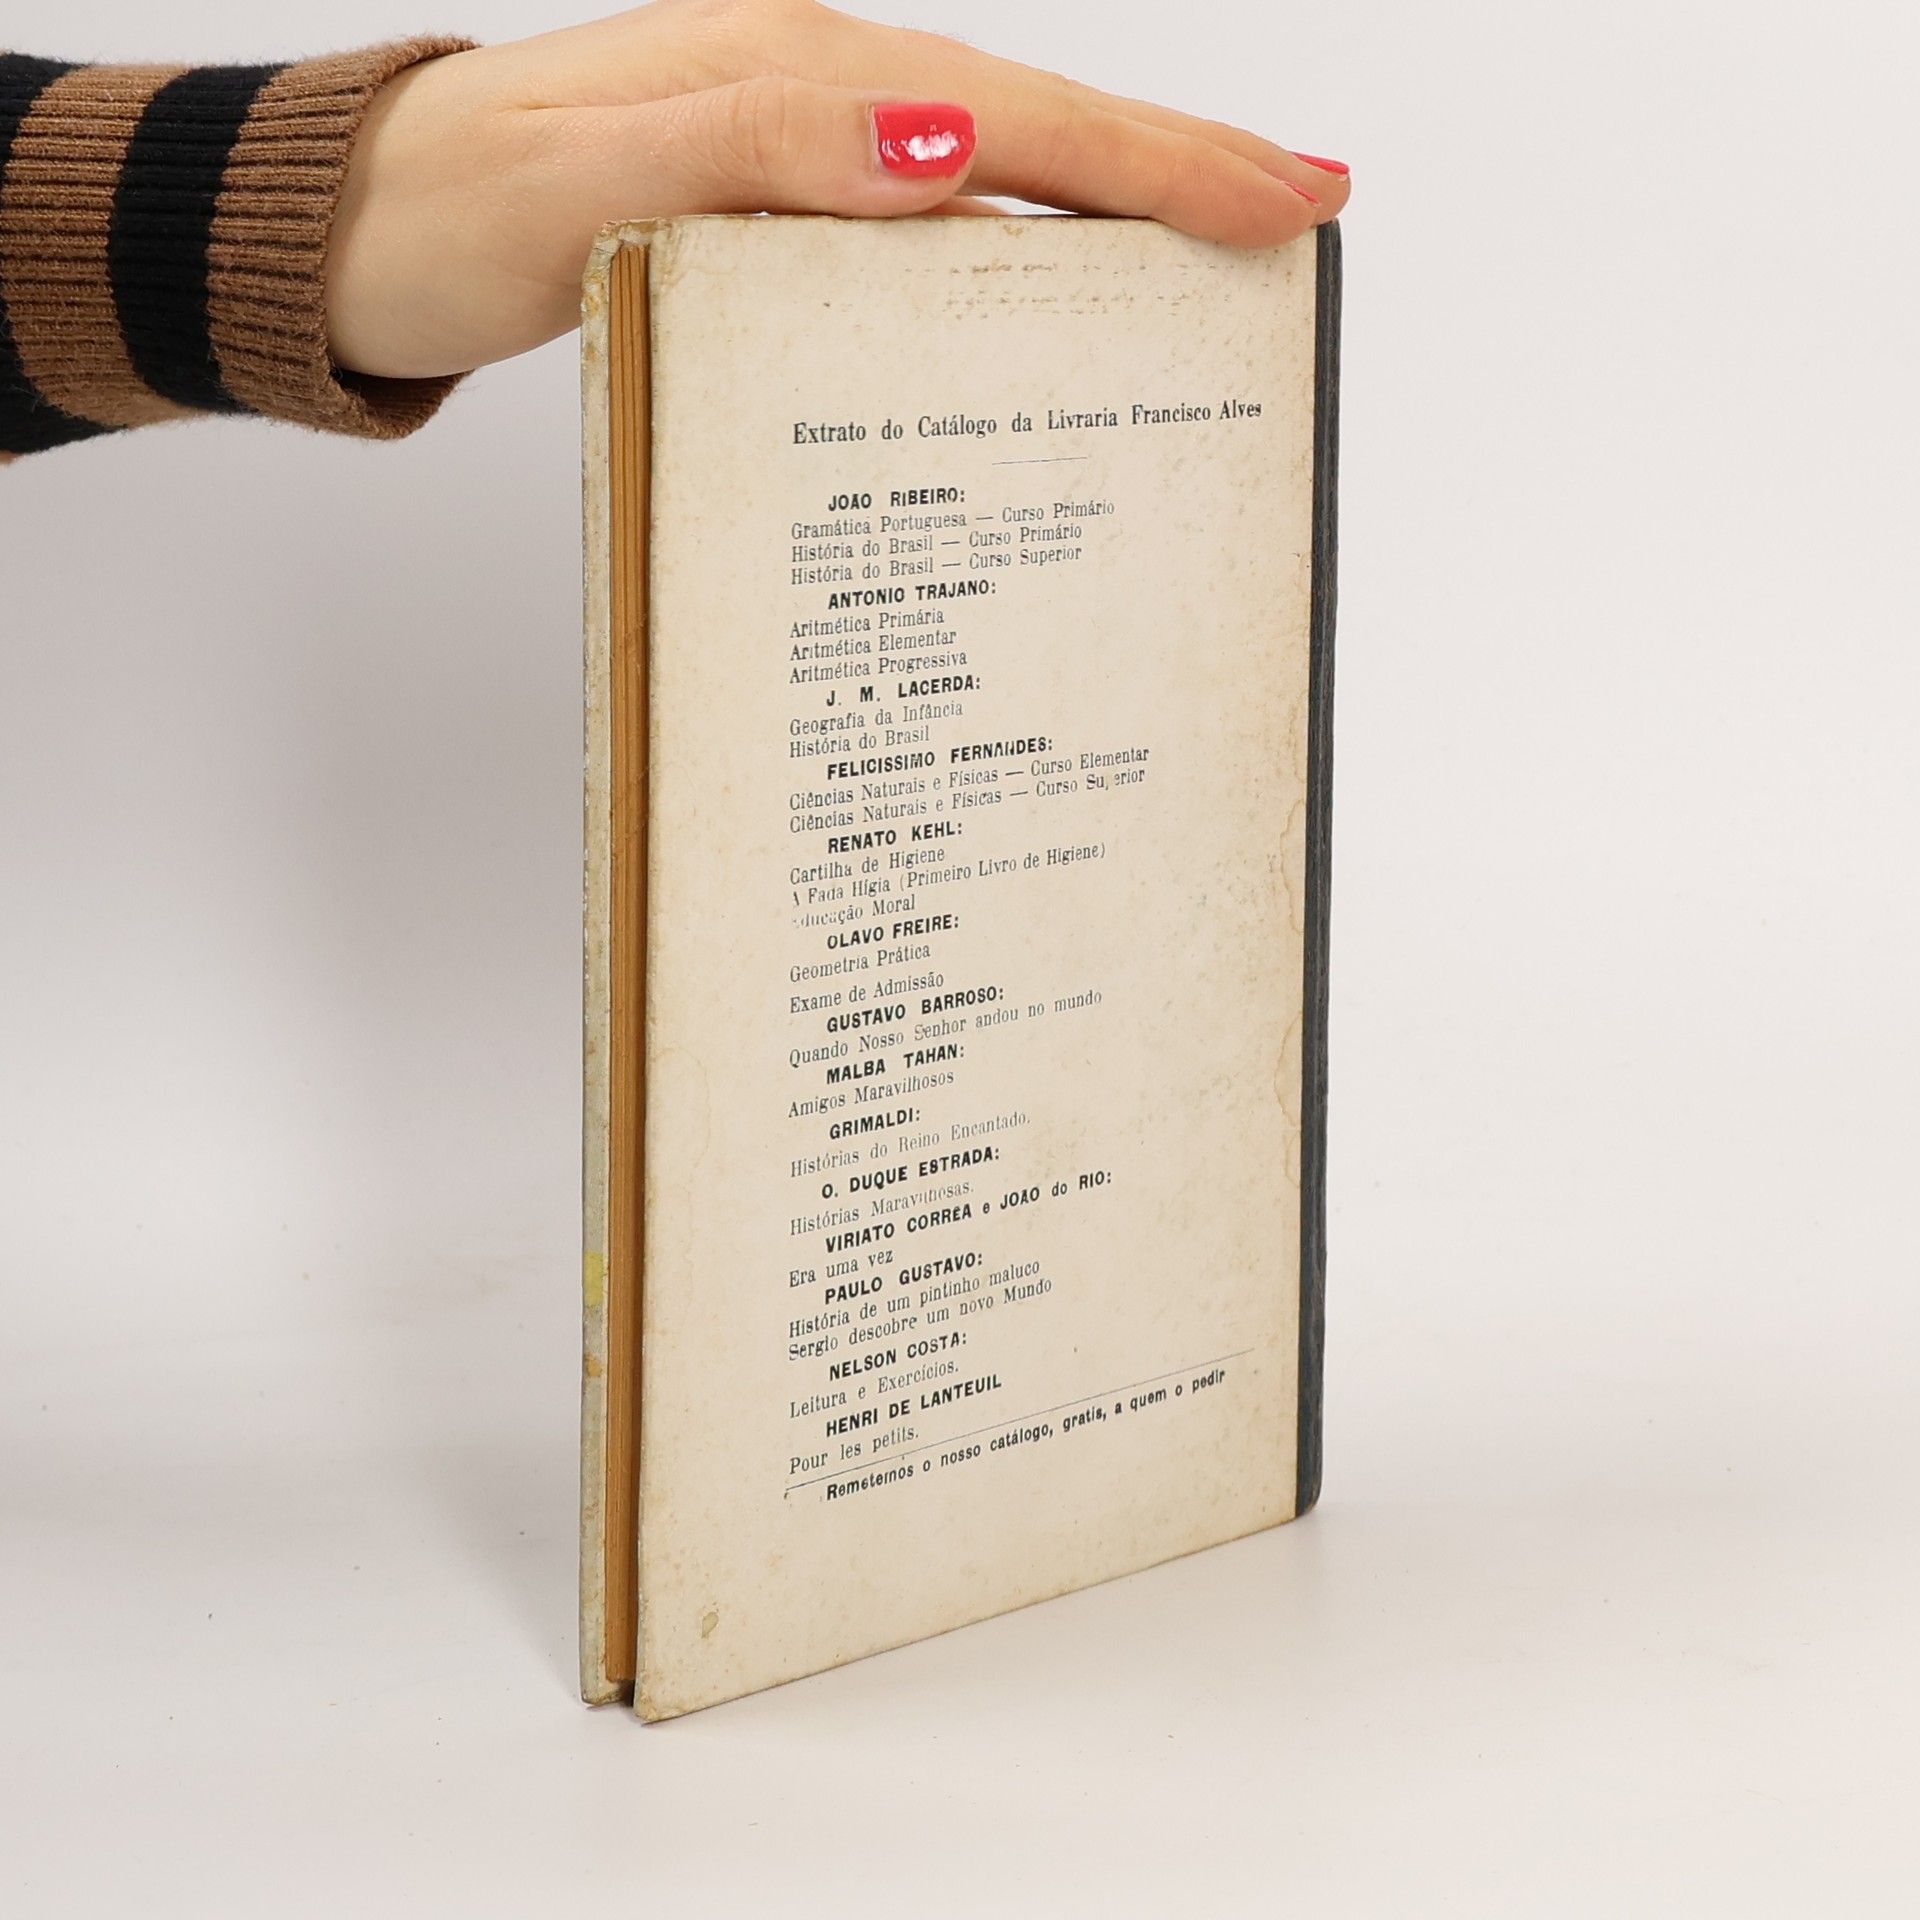 Extrato do Catálogo da Livraria Francisco Alves
JOAO RIBEIRO:
Gramática Portuguesa — Curso Primário
História do Brasil — Curso Primário
História do Brasil — Curso Superior
ANTONIO TRAJANO:
Aritmética Primária
Aritmética Elementar
Aritmética Progressiva
J. M. LACERDA:
Geografia da Infância
História do Brasil
FELICISSIMO FERNANDES:
Ciências Naturais e Físicas — Curso Elementar
Ciências Naturais e Físicas — Curso Superior
RENATO KEHL:
Cartilha de Higiene
A Fada Hígia (Primeiro Livro de Higiene)
Educação Moral
OLAVO FREIRE:
Geometria Prática
Exame de Admissão
GUSTAVO BARROSO:
Quando Nosso Senhor andou no mundo
MALBA TAHAN:
Amigos Maravilhosos
GRIMALDI:
Histórias do Reino Encantado.
O. DUQUE ESTRADA:
Histórias Maravilhosas.
VIRIATO CORRÊA e JOAO do RIO:
Era uma vez
PAULO GUSTAVO:
História de um pintinho maluco
Sergio descobre um novo Mundo
NELSON COSTA:
Leitura e Exercícios.
HENRI DE LANTEUIL
Pour les petits.
Remetemos o nosso catálogo, gratis, a quem o pedir